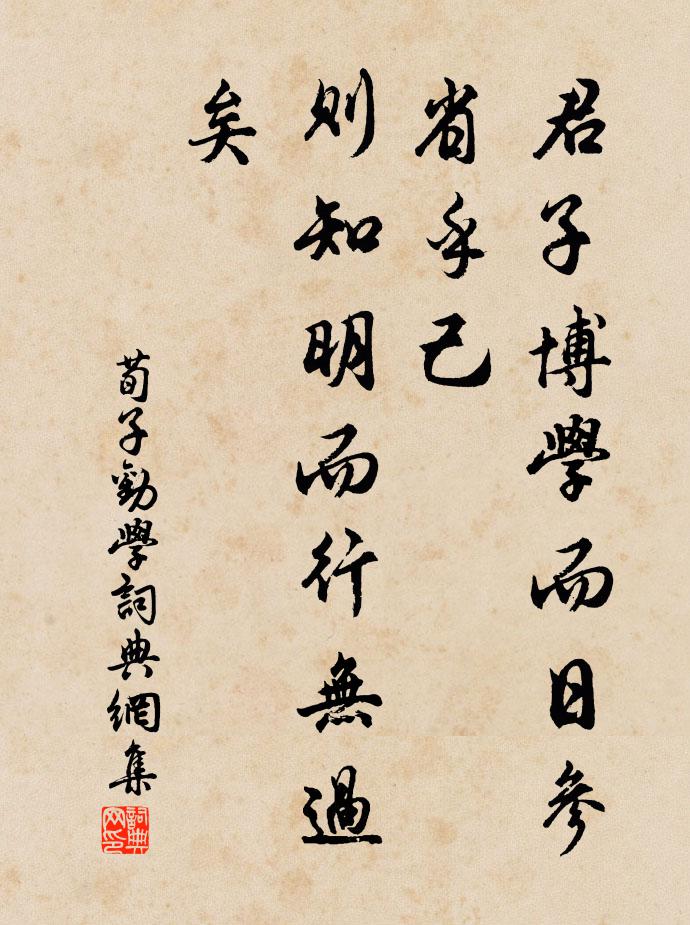 君子博學而日參
省乎己
則知明而行無過
矣
荀子勸學詞典網集
詞典網印